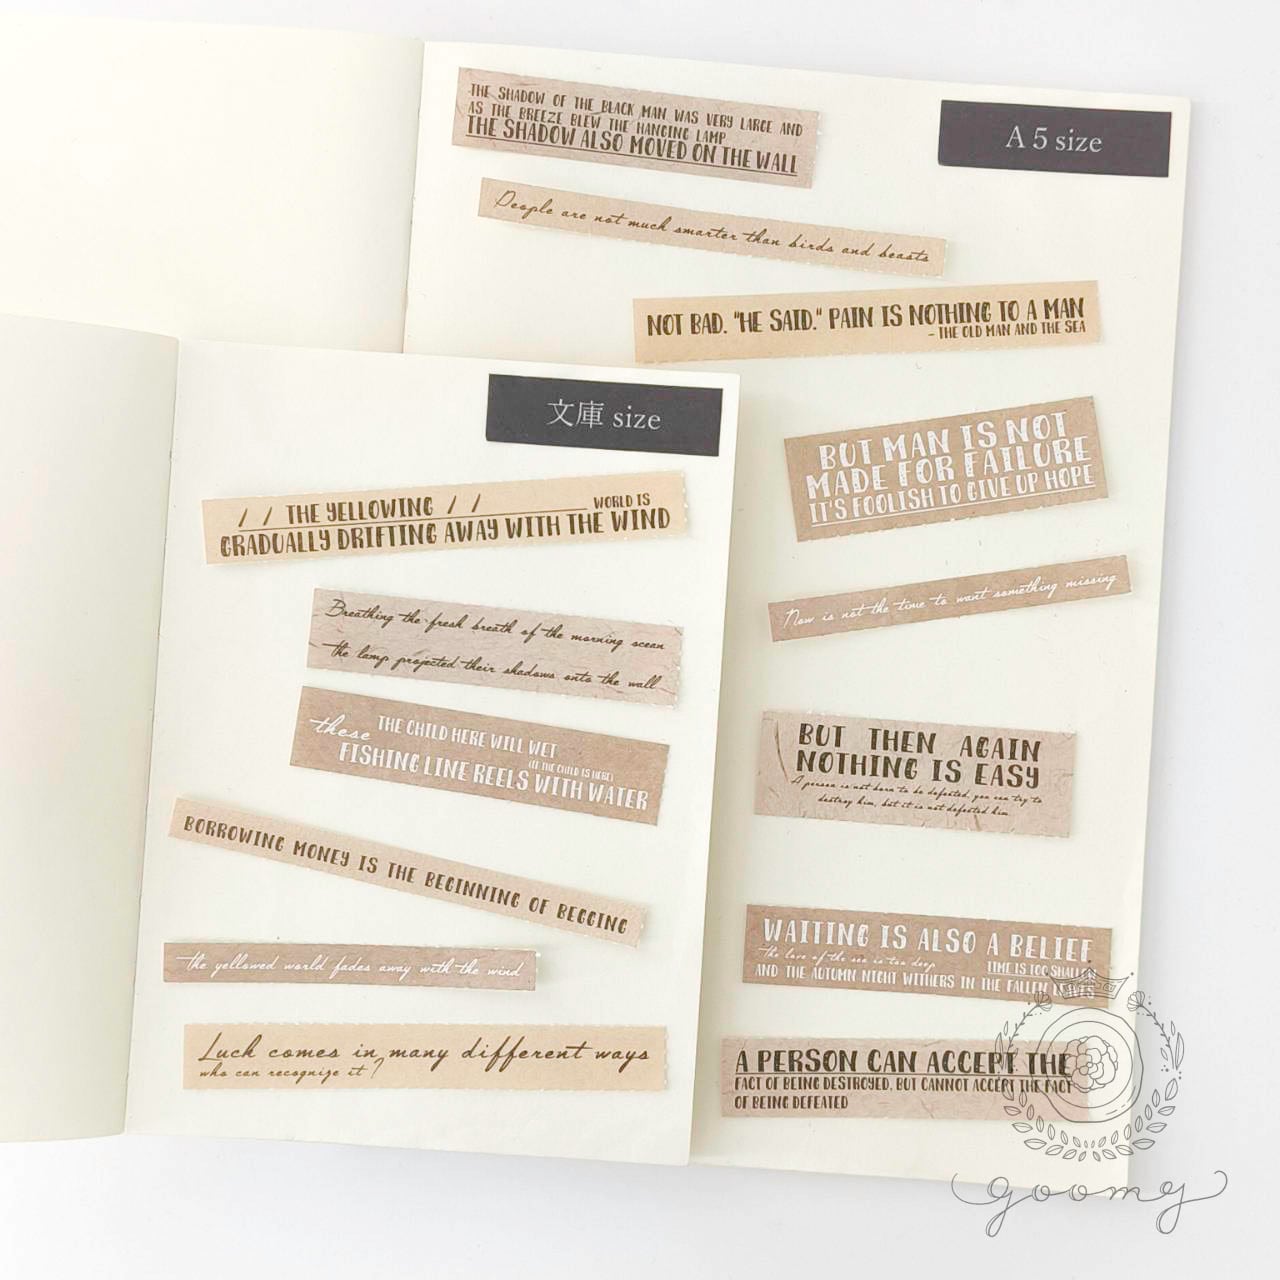 THE SHADOW OF THE BLACK MAN WAS VERY LARGE AND
AS THE BREEZE BLEW THE HANGING LAMP
THE SHADOW ALSO MOVED ON THE WALL
A 5 size
People are not much smarter than birds and beasts
NOT BAD. "HE SAID." PAIN IS NOTHING TO A MAN
- THE OLD MAN AND THE SEA
BUT MAN IS NOT
MADE FOR FAILURE
IT'S FOOLISH TO GIVE UP HOPE
Now is not the time to want something missing
BUT THEN AGAIN
NOTHING IS EASY
A person is not born to be defeated, you can try to
destroy him, but it is not defeated him
WAITING IS ALSO A BELIEF
the love of the sea is too deep
TIME IS TOO SHALLOW
AND THE AUTUMN NIGHT WITHERS IN THE FALLEN LEAVES
A PERSON CAN ACCEPT THE
FACT OF BEING DESTROYED, BUT CANNOT ACCEPT THE FACT
OF BEING DEFEATED
文庫 size
/ / THE YELLOWING / / WORLD IS
GRADUALLY DRIFTING AWAY WITH THE WIND
Breathing the fresh breath of the morning ocean
the lamp projected their shadows onto the wall
these THE CHILD HERE WILL WET
(IF THE CHILD IS HERE)
FISHING LINE REELS WITH WATER
BORROWING MONEY IS THE BEGINNING OF BEGGING
the yellowed world fades away with the wind
Luck comes in many different ways
who can recognize it?
goomy